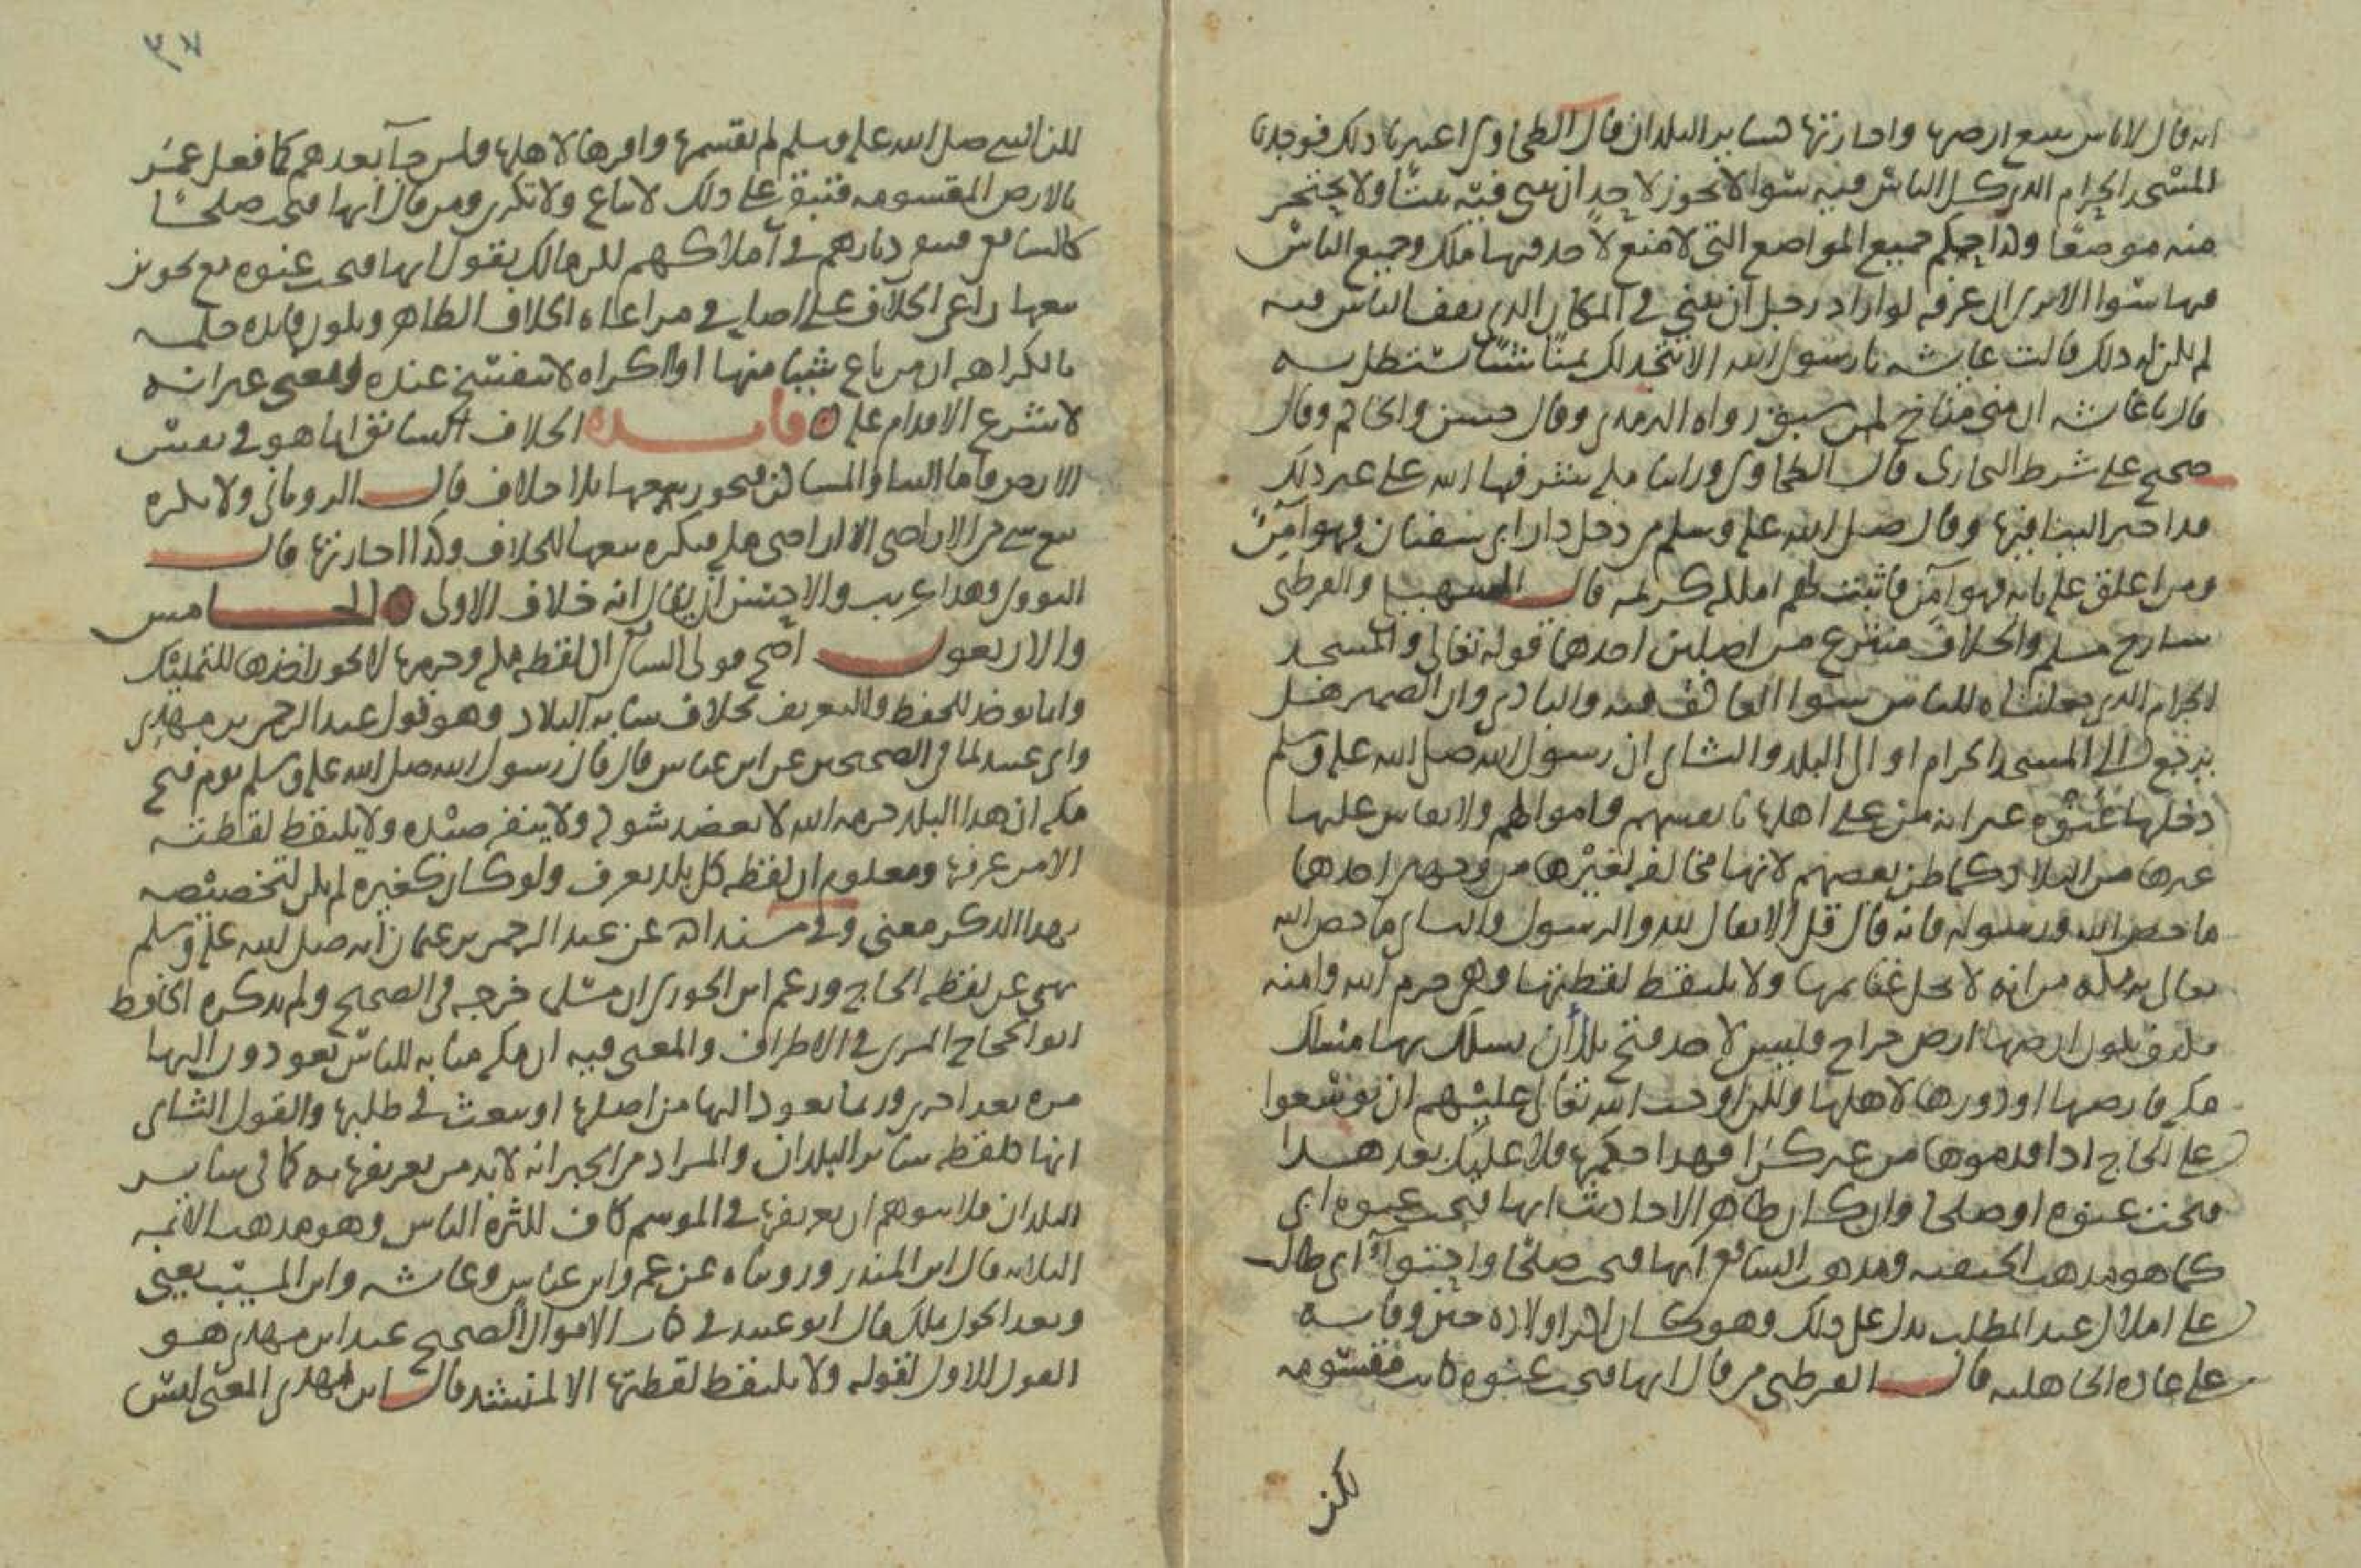 انه قال لا باس ببيع ارضها واجارتها كساير البلدان قال الطحاوي اعتبرنا ذلك فوجدنا
المسجد الحرام الذي كل الناس فيه سوا لا يجوز لاحد ان يبني فيه بيتا ولا يحتجر
منه موضعا وكذا حكم جميع المواضع التي لا منع لاحد فيها ملك وجميع الناس
فيها سوا الا ترى ان عرفة لو اراد رجل ان يبني في المكان الذي يقف الناس فيه
لم يكن له ذلك قالت عايشه يا رسول الله الا نتخذ لك بمنا شيئا تستظل به
قال يا عايشه ان منى مناخ لمن سبق رواه الترمذي وقال حسن والحاكم وقال
صحيح على شرط البخاري قال الطحاوي وراينا مكه شرفها الله على غير ذلك
قد اجيز البنا فيها وقال صلى الله عليه وسلم من دخل دار ابي سفيان فهو آمن
ومن اغلق عليه بابه فهو آمن فاثبت لهم املاكهم قال السهيلي والقرطبي
شارح مسلم والخلاف متفرع من اصلين احدهما قوله تعالى والمسجد
الحرام الذي جعلناه للناس سوا العاكف فيه والبادي وان الضمير هل
يرجع الى المسجد الحرام او الى البلد والثاني ان رسول الله صلى الله عليه وسلم
دخلها عنوه غير انه من على اهلها بانفسهم واموالهم ولا يقاس عليها
غيرها من البلاد كما ظن بعضهم لانها مخالفه لغيرها من وجهين احدهما
ما خص الله به رسوله فانه قال قل الانفال لله والرسول والثاني ما خص الله
تعالى به مكه من انه لا تحل غنايمها ولا يلتقط لقطتها وهي حرم الله وامنه
فكيف يكون ارضها ارض خراج فليس لاحد فتح بلدا ان يسلك بها مسلك
مكه فارضها اذا ودورها لاهلها ولكن اوجب الله تعالى عليهم ان يوسعوا
على الحاج اذا قدموها من غير كرا فهذا حكمها فلا عليك بعد هذا
فتحت عنوه او صلحا وان كان ظاهر الاحاديث انها فتحت عنوه اي
كما هو مذهب الحنفيه ومذهب الشافعي انها فتحت صلحا واحتوا ابي طالب
على املاك عبد المطلب يدل على ذلك وهو كان اكبر اولاده حين وفاته
على عادة الجاهليه قال القرطبي من قال انها فتحت عنوه كانت مقسومه
لكن
٣٧
لكن النبي صلى الله عليه وسلم لم يقسمها واقرها لاهلها ولمن جآ بعدهم كما فعل عمر
بالارض المقسومه فتبقى على ذلك لا تباع ولا تكرى ومن قال انها فتحت صلحا
كالشافعي فتبقى ديارهم في املاكهم لكن مالك يقول انها فتحت عنوه مع تجويز
بيعها راعى الخلاف على اصله في مراعاه الخلاف الظاهر ويكون فايده حكمه
بالكراهه ان من باع شيا منها او اكراه لا ينفسخ عنده ومعنى غير انه
لا يشرع الاقدام عليه فايده الخلاف السابق انما هو في نفس
الارض فاما البنا والمساكن فيجوز بيعها بلا خلاف قال الروياني ولا يكره
بيع شي من الاراضي الا اراضي مكه فيكره بيعها للخلاف وكذا اجارتها قال
النووي وهذا غريب والاحسن ان يقال انه خلاف الاولى الخامس
والاربعون اصح قولي الشافعي ان لقطه مكه وحرمها لا يجوز اخذها للتمليك
وانما توخذ للحفظ والتعريف بخلاف ساير البلاد وهو قول عبد الرحمن بن مهدي
وابي عبيد لما في الصحيحين عن ابن عباس قال قال رسول الله صلى الله عليه وسلم يوم فتح
مكه ان هذا البلد حرمه الله لا يعضد شوكه ولا ينفر صيده ولا يلتقط لقطته
الا من عرفها ومعلوم ان لقطه كل بلد تعرف ولو كان كغيره لم يكن لتخصيصه
بهذا الذكر معنى وفي مسند الله عن عبد الرحمن بن عثمان انه صلى الله عليه وسلم
نهى عن لقطه الحاج وزعم ابن الجوزي ان مسلما خرجه في الصحيح ولم يذكره الحافظ
ابو الحجاج المزي في الاطراف والمعنى فيه ان مكه مثابه للناس يعودون اليها
مره بعد اخرى وربما يعود اليها من اضلها او يبعث في طلبها والقول الثاني
انها كلقطه ساير البلدان والمراد من الخبر انه لابد من تعريفها به كما في ساير
البلدان فلا يتوهم ان تعريفها في الموسم كاف لكثره الناس وهو مذهب الائمه
الثلاثه قال ابن المنذر وروينا ه عن عمر وابن عباس وعايشه وابن المسيب يعني
وبعد الحول يملك قال ابو عبيد في كتاب الاموال الصحيح عند ابن مهدي هو
القول الاول لقوله ولا يلتقط لقطتها الا لمنشد قال ابن مهدي المعنى ليس